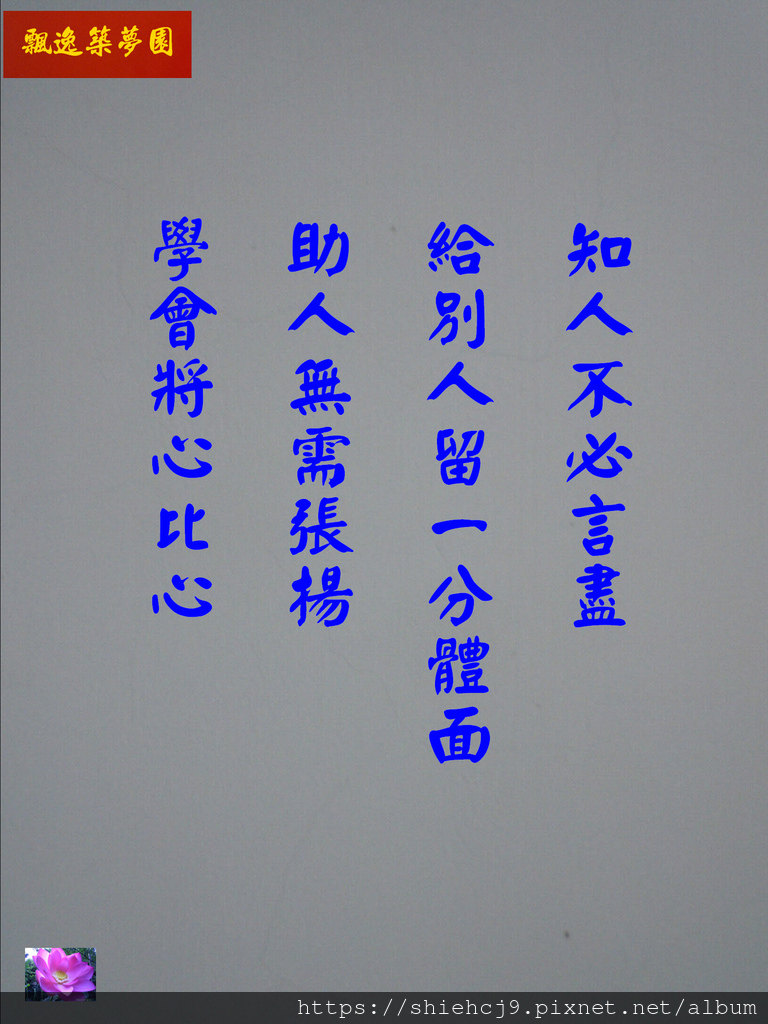 飄逸築夢園
知人不必言盡
給別人留一分體面
助人無需張揚
學會將心比心
https://shiehcj9.pixnet.net/album